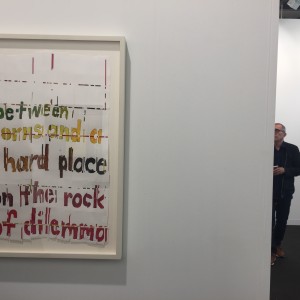 between
orns and a
hard place
on the rock
of dilemma